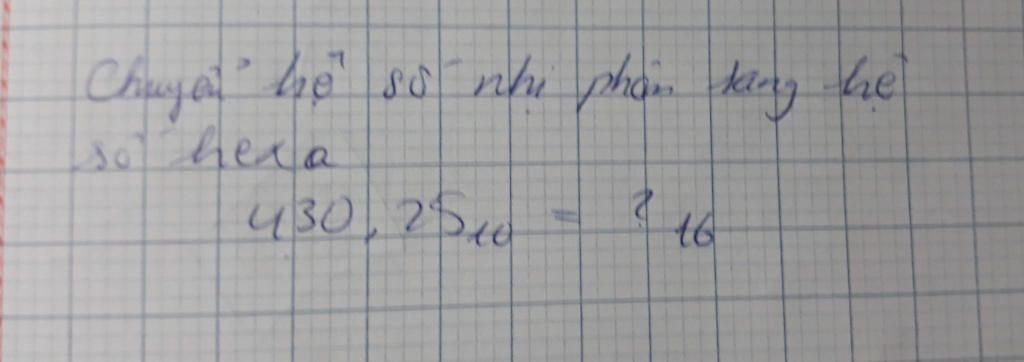 Chuyển hệ số nhị phân sang hệ
số hexa
430,25₁₀ = ?₁₆